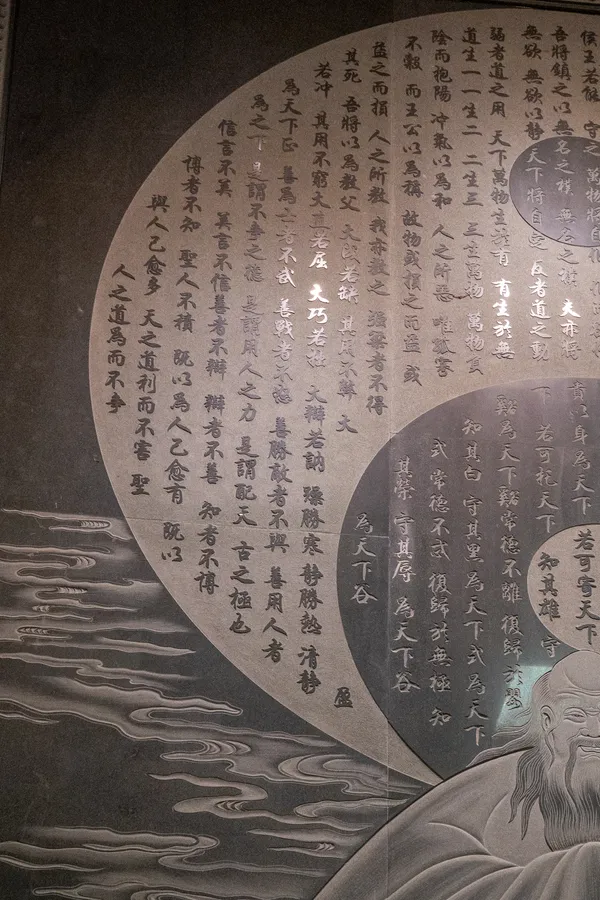 侯王若能 守之 萬物將自
吾將鎮之以 無名之樸 無名之樸 夫亦將
無欲 無欲以靜 天下將自定 反者道之動
弱者道之用 天下萬物生於有 有生於無
道生一 一生二 二生三 三生萬物 萬物負
陰而抱陽 冲氣以為和 人之所惡 唯孤寡
不穀 而王公以為稱 故物或損之而益 或
益之而損 人之所教 我亦教之 強梁者不得
其死 吾將以為教父 大成若缺 其用不弊 大
盈
若冲 其用不窮 大直若屈 大巧若拙 大辯若訥 躁勝寒 靜勝熱 清靜
為天下正 善為士者不武 善戰者不怒 善勝敵者不與 善用人者
為之下 是謂不爭之德 是謂用人之力 是謂配天 古之極也
信言不美 美言不信 善者不辯 辯者不善 知者不博
博者不知 聖人不積 既以為人己愈有 既以
與人己愈多 天之道利而不害 聖
人之道為而不爭
貴以身為天下
若可寄天下
下 若可托天下
知其雄 守
谿為天下谿 常德不離 復歸於嬰
知其白 守其黑 為天下式 為天下
式 常德不忒 復歸於無極 知
其榮 守其辱 為天下谷
為天下谷